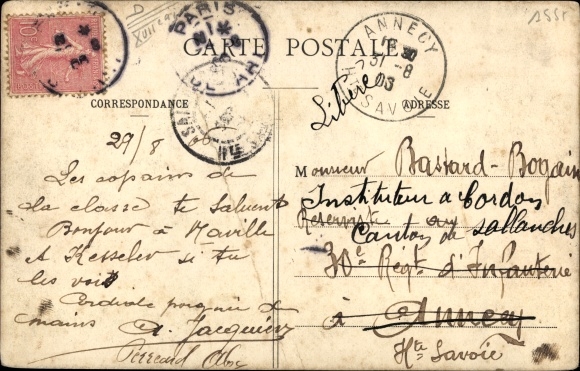 1558
CARTE POSTALE
CORRESPONDANCE
ADRESSE
PARIS
ANNECY
31 -8
03
HTE SAVOIE
10
Libéré
29/8
Les copains de
la classe te saluent
Bonjour à Maville
A Kesseler si tu
les vois
Cordiale poignée de
mains
A. Jacquier
Perréard
Monsieur Bastard-Bogain
Instituteur à Cordon
Réserviste au
Canton de Sallanches
30e Régt d'Infanterie
à Annecy
Hte Savoie